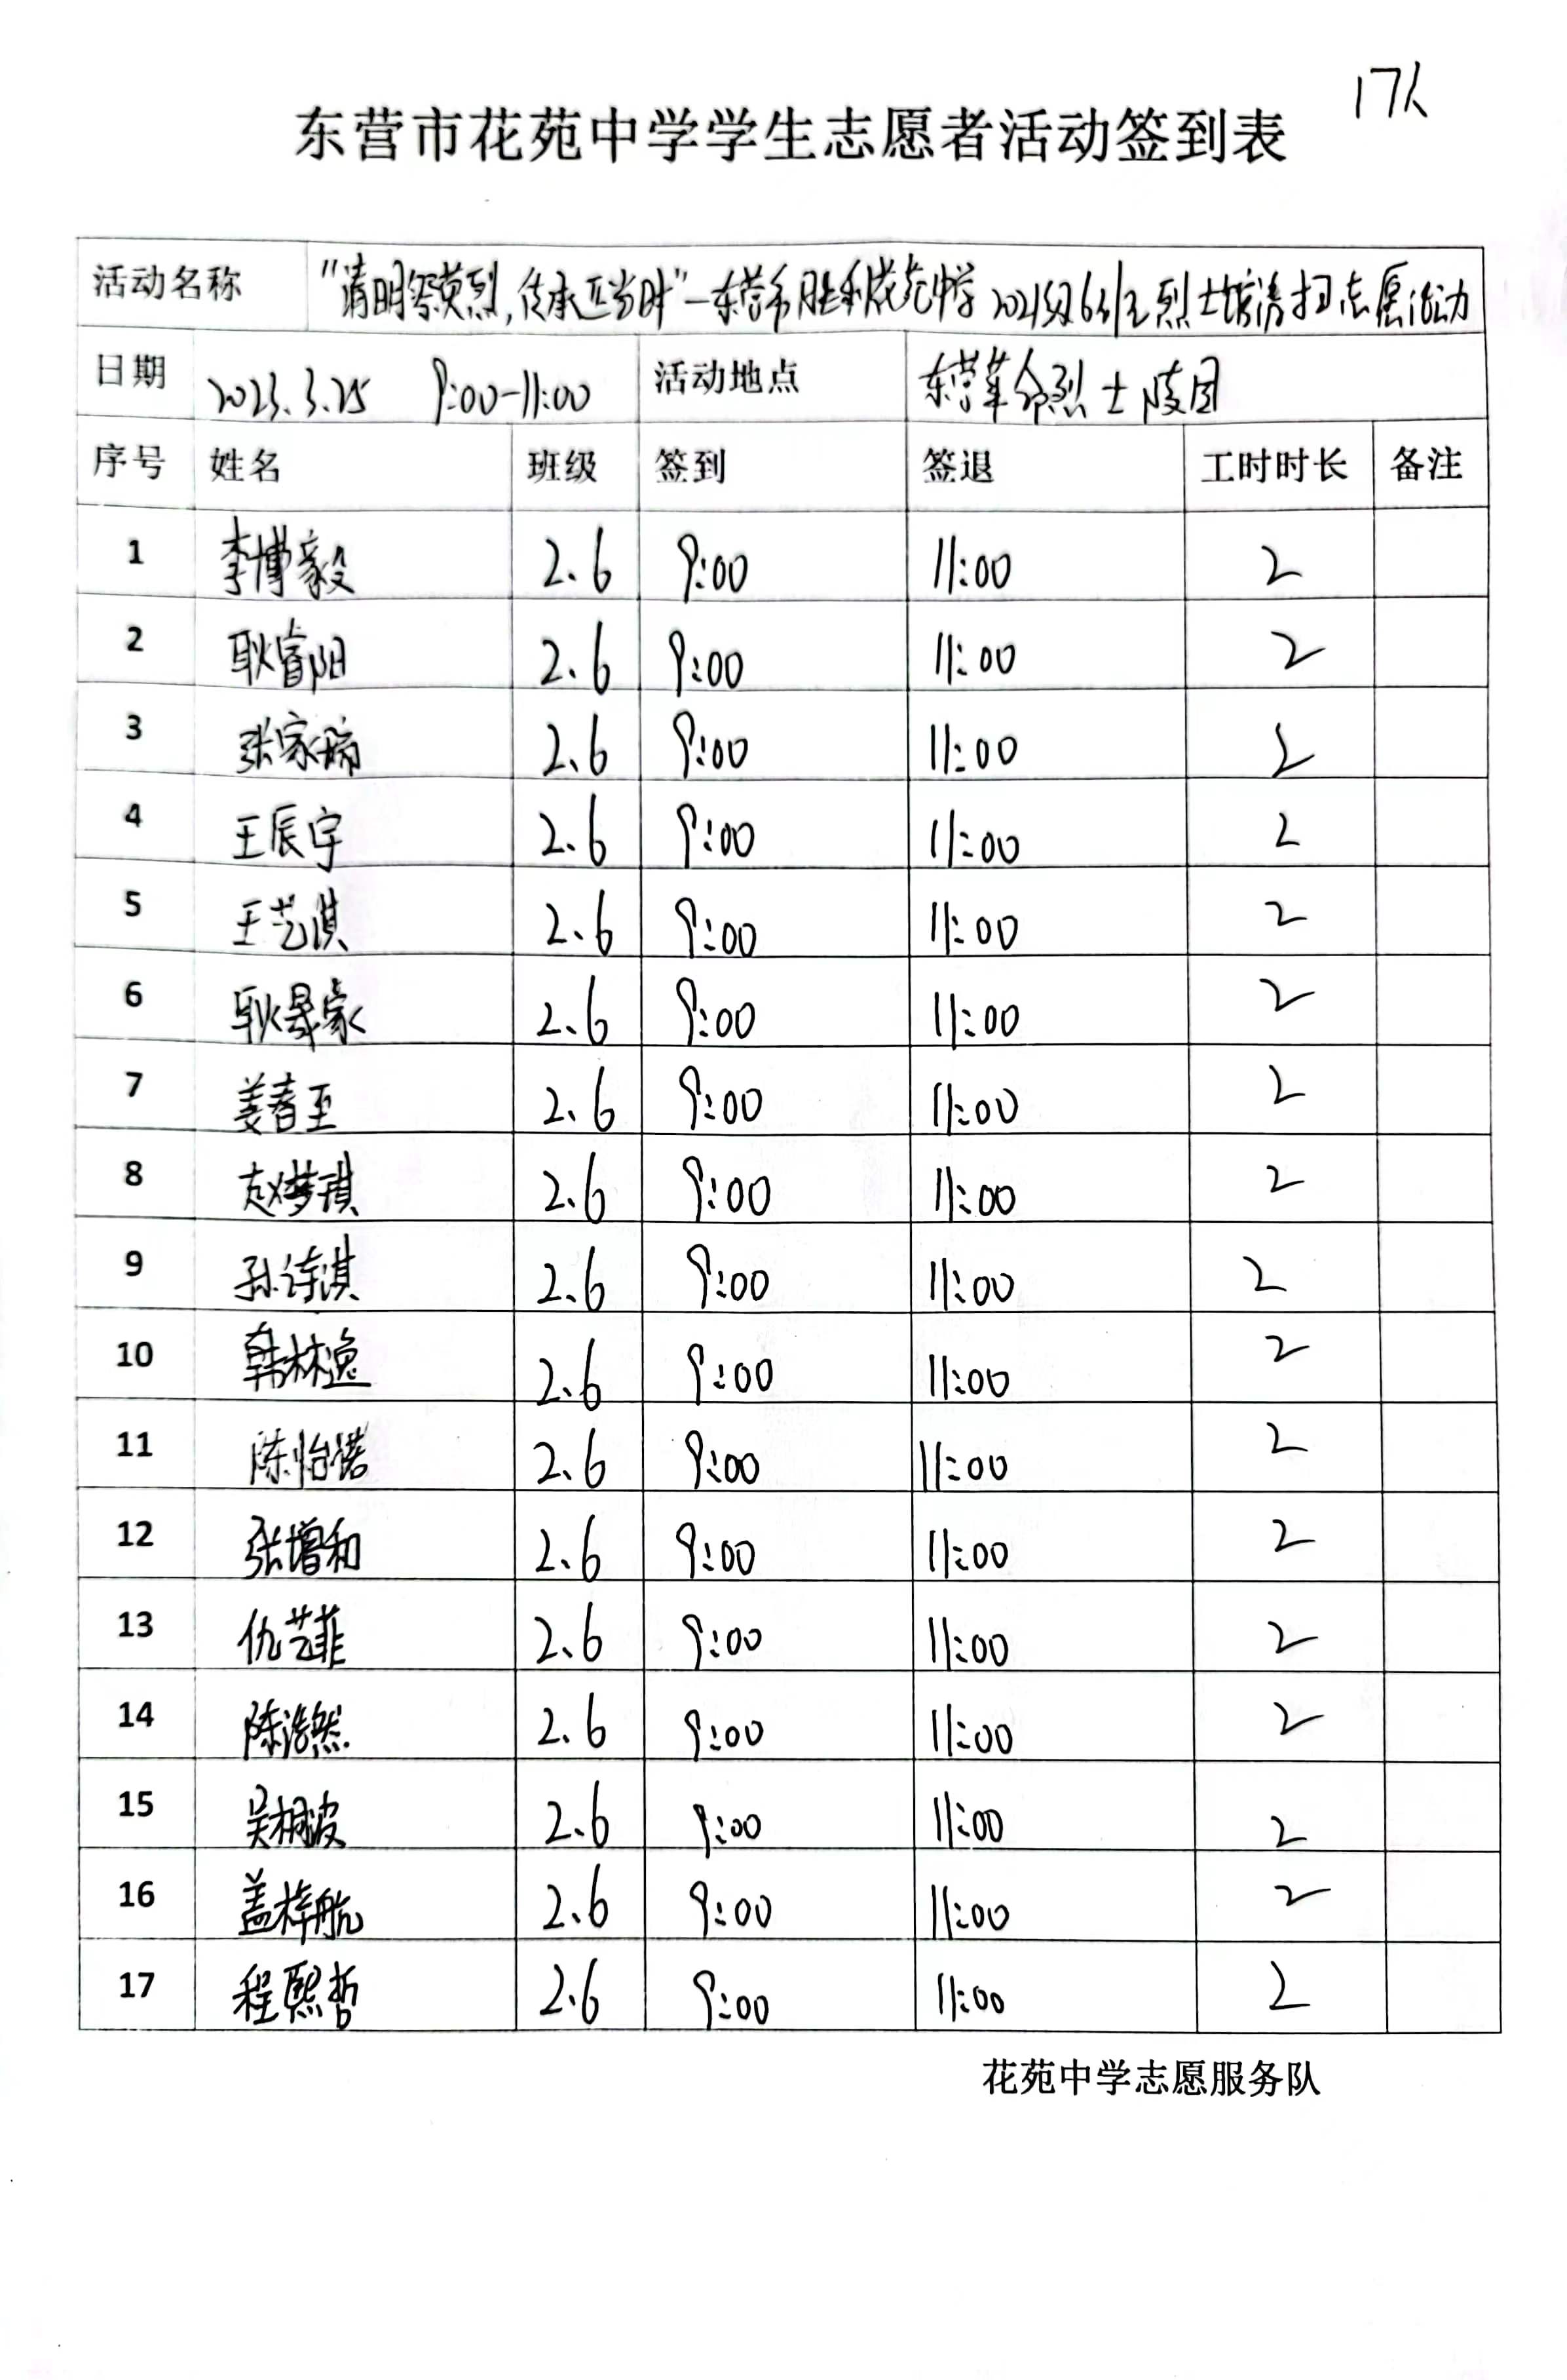 17人
东营市花苑中学学生志愿者活动签到表
活动名称 "清明祭英烈,传承正当时"—东营市胜利花苑中学2021级6班烈士墙清扫志愿活动
日期 2023.3.25 9:00-11:00 活动地点 东营革命烈士陵园
序号 姓名 班级 签到 签退 工时时长 备注
1 李博毅 2.6 9:00 11:00 2
2 耿睿阳 2.6 9:00 11:00 2
3 张家瑞 2.6 9:00 11:00 2
4 王辰宇 2.6 9:00 11:00 2
5 王艺淇 2.6 9:00 11:00 2
6 耿晟豪 2.6 9:00 11:00 2
7 姜春至 2.6 9:00 11:00 2
8 赵梦琪 2.6 9:00 11:00 2
9 孙诗淇 2.6 9:00 11:00 2
10 韩林逸 2.6 9:00 11:00 2
11 陈怡诺 2.6 9:00 11:00 2
12 张增和 2.6 9:00 11:00 2
13 仇艺菲 2.6 9:00 11:00 2
14 陈浩然 2.6 9:00 11:00 2
15 吴桐波 2.6 9:00 11:00 2
16 盖梓航 2.6 9:00 11:00 2
17 程熙哲 2.6 9:00 11:00 2
花苑中学志愿服务队